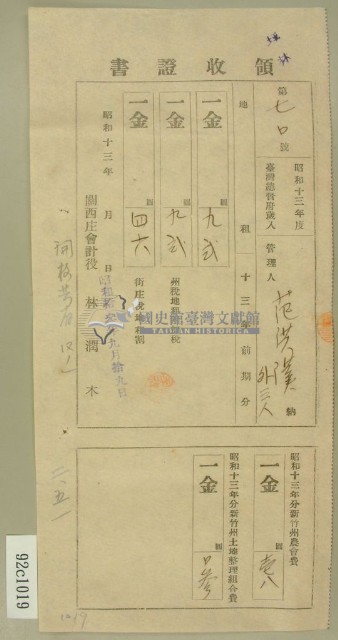 坪林
領收證書
第七〇號
昭和十三年度
臺灣總督府歲入
管理人 范洪漢 外三人 納
地租十三年前期分
一金 圓 九貳
一金 圓 九貳
州稅地租附加稅
一金 圓 四六
街庄稅地租割
昭和十三年 月 日
昭和拾參年九月拾九日
關西庄會計役 林潤木
國史館臺灣文獻館
TAIWAN HISTORICA
昭和十三年分新竹州農會費
一金 圓 壱八
昭和十三年分新竹州土地整理組合費
一金 圓 〇參
二、五一
1019
92c1019